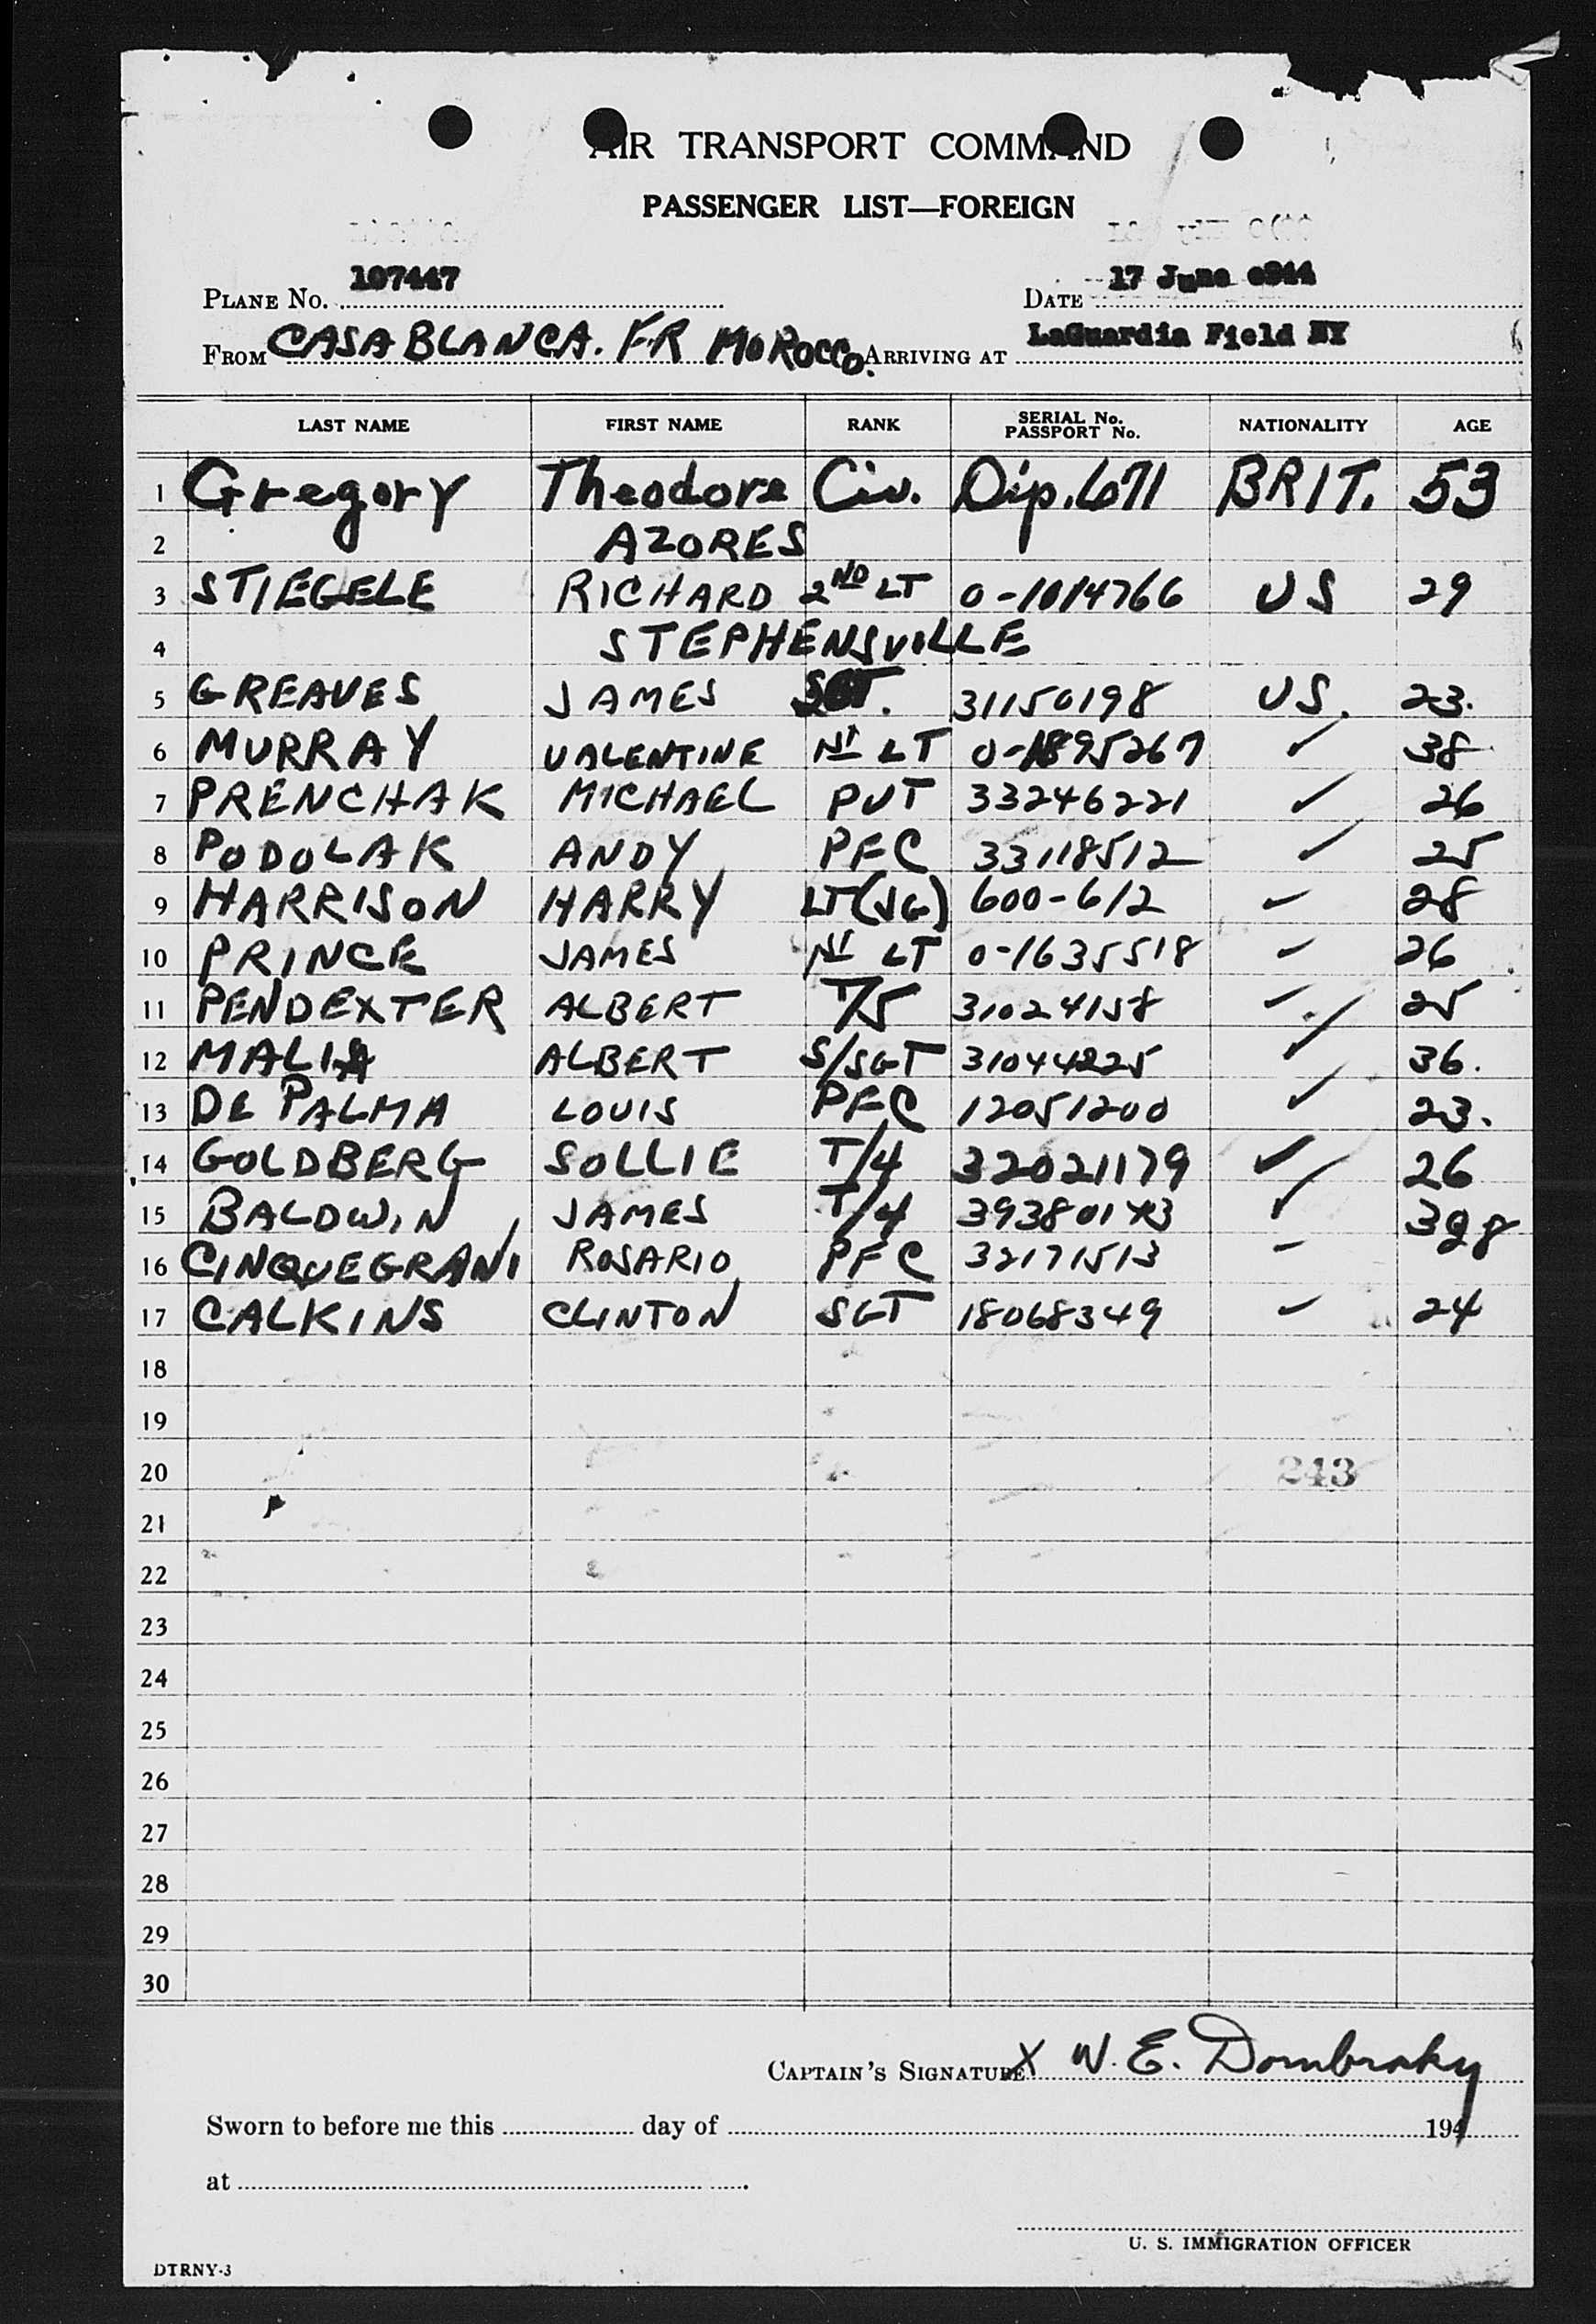 AIR TRANSPORT COMMAND
PASSENGER LIST—FOREIGN
PLANE NO. 107447 DATE 17 June 1944
FROM CASABLANCA. FR MOROCCO. ARRIVING AT LaGuardia Field NY
LAST NAME FIRST NAME RANK SERIAL No. PASSPORT No. NATIONALITY AGE
1 Gregory Theodore Civ. Dip. 671 BRIT. 53
2 AZORES
3 STIEGELE RICHARD 2ND LT 0-1014766 US 29
4 STEPHENSVILLE
5 GREAVES JAMES SGT. 31150198 US. 23.
6 MURRAY VALENTINE 1ST LT 0-1895267 ✓ 38
7 PRENCHAK MICHAEL PVT 33246221 ✓ 26
8 PODOLAK ANDY PFC 33118512 ✓ 25
9 HARRISON HARRY LT(JG) 600-612 ✓ 28
10 PRINCE JAMES 1ST LT 0-1635518 ✓ 26
11 PENDEXTER ALBERT T/5 31024158 ✓ 25
12 MALIA ALBERT S/SGT 31044225 ✓ 36.
13 DE PALMA LOUIS PFC 12051200 ✓ 23.
14 GOLDBERG SOLLIE T/4 32021179 ✓ 26
15 BALDWIN JAMES T/4 ✓
16 CINQUEGRANI ROSARIO PFC 32171513 - 28
17 CALKINS CLINTON SGT 18068349 ✓ 24
18
19
20 243
21
22
23
24
25
26
27
28
29
30
CAPTAIN'S SIGNATURE X W. E. Dombrosky
Sworn to before me this day of 194
at
U. S. IMMIGRATION OFFICER
DTRNY-3